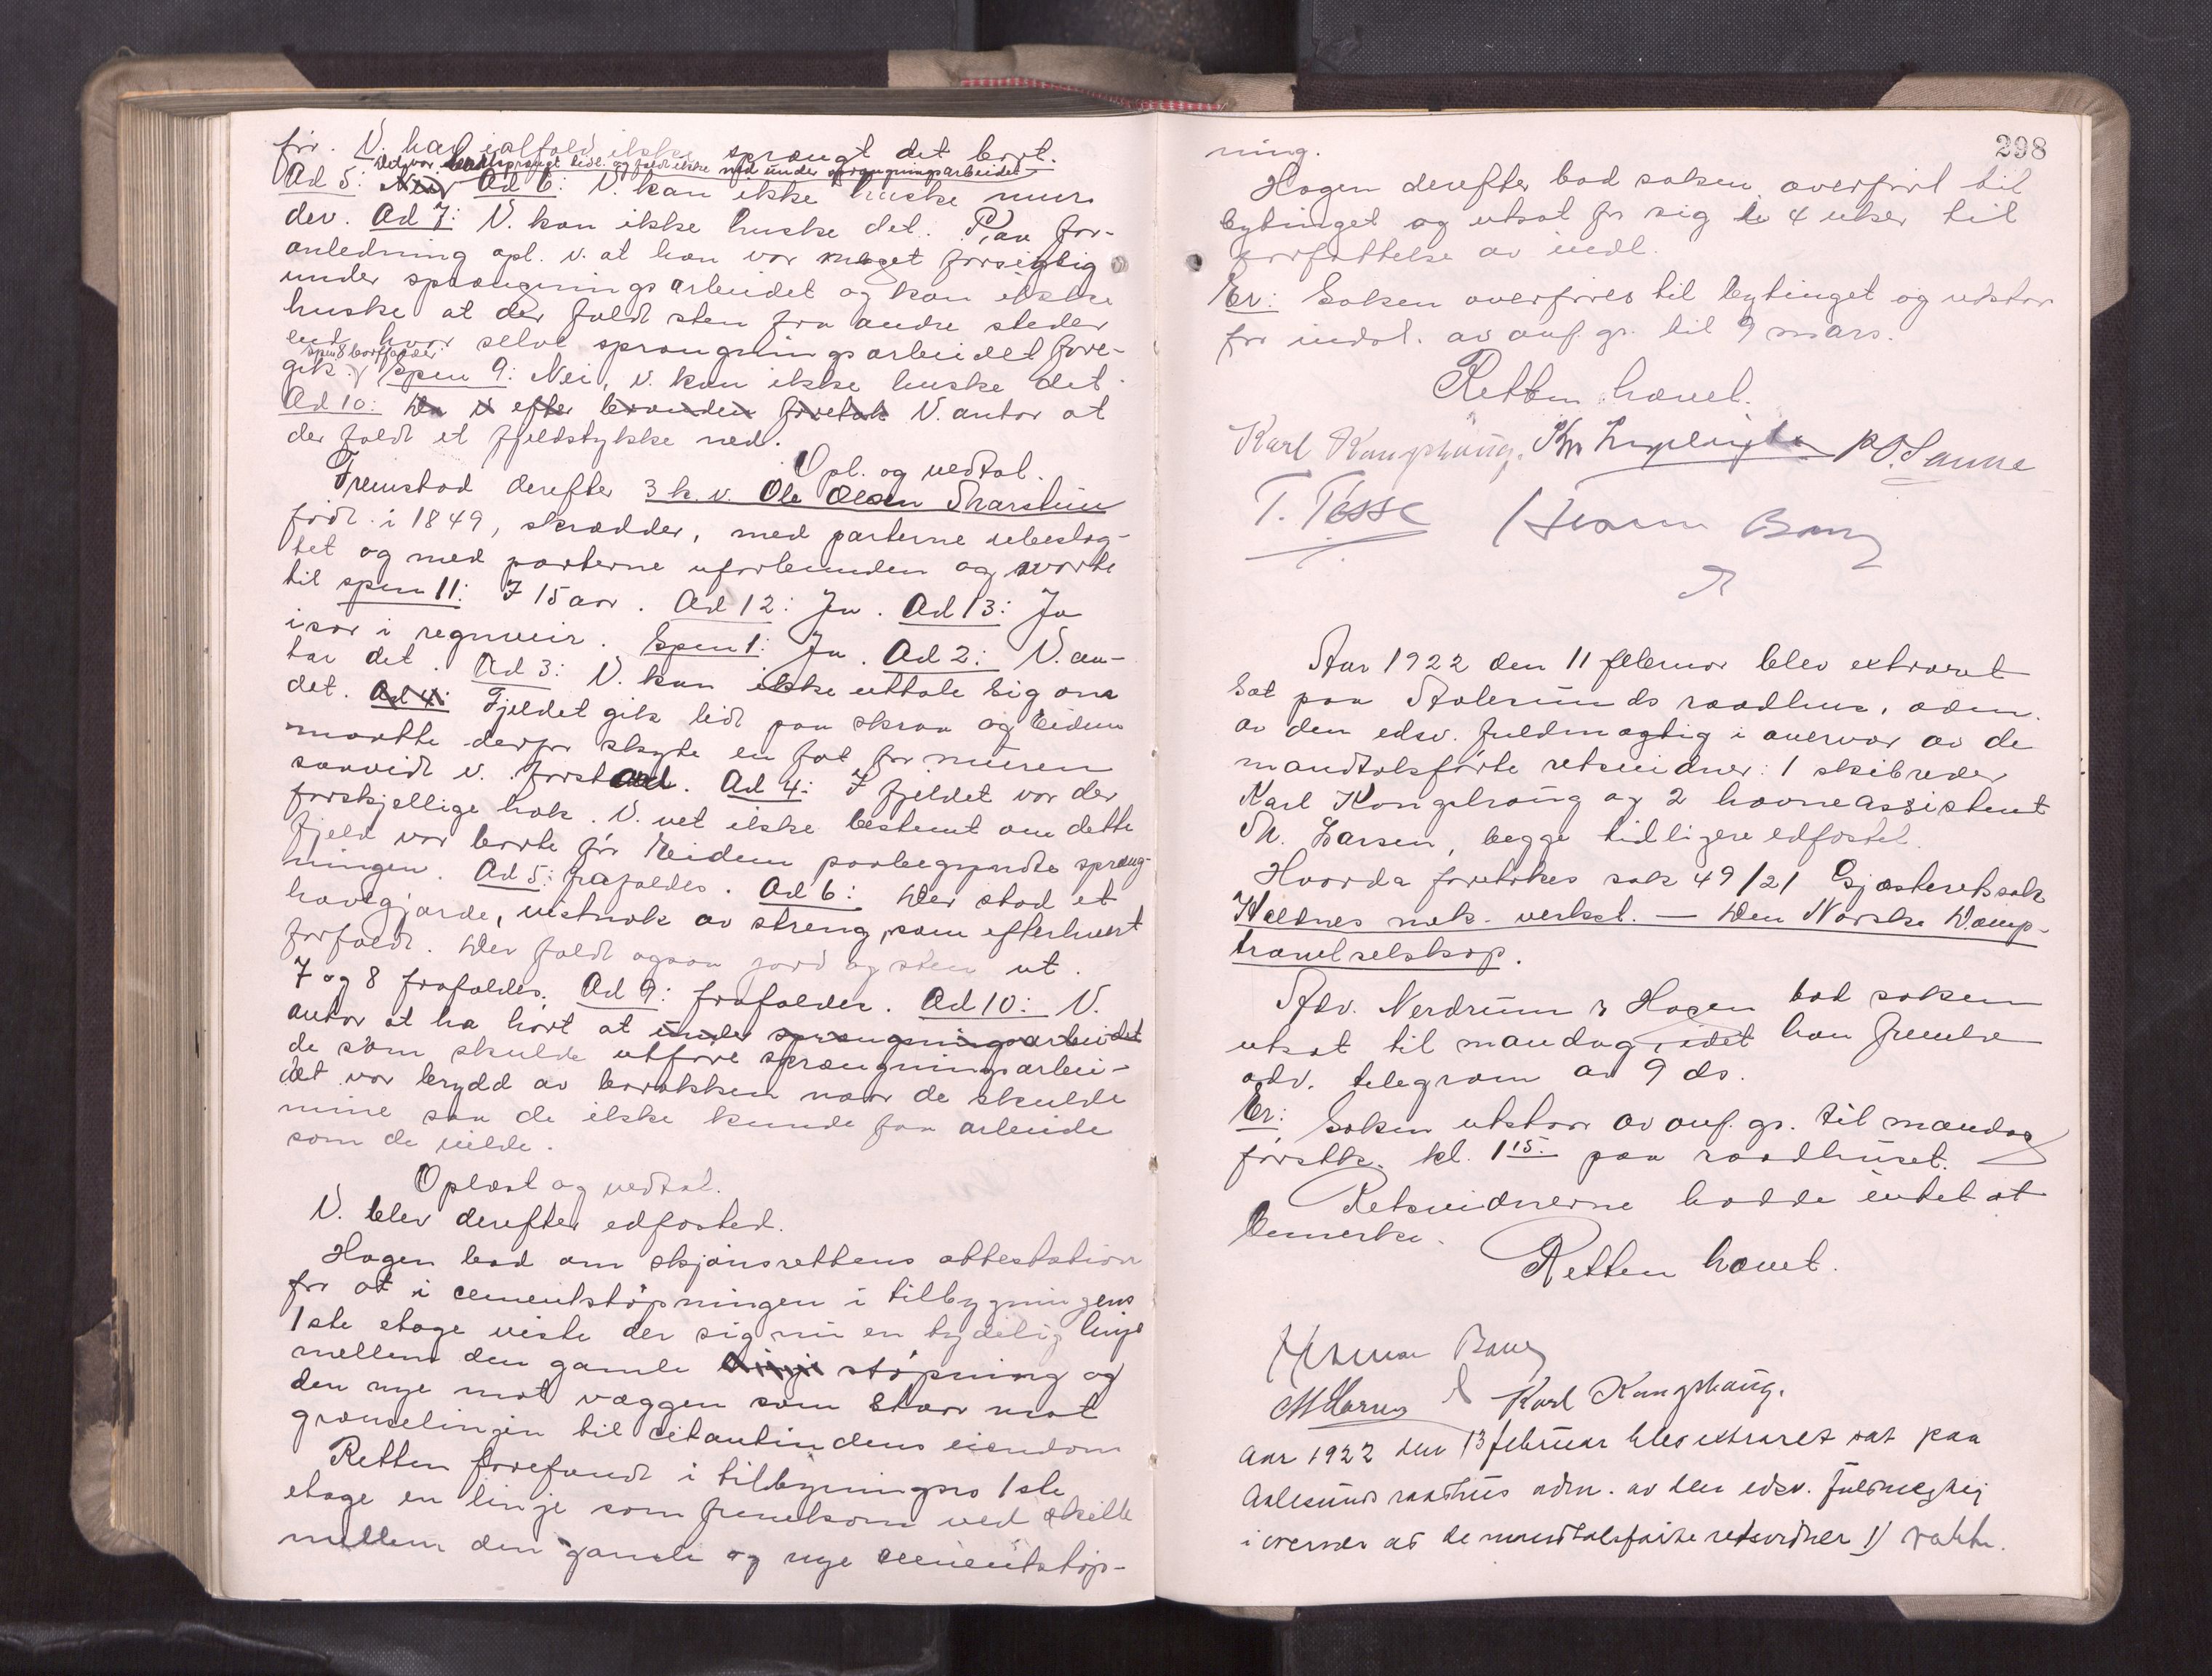 før. V. har ialfald ikke sprængt det bort.
Det var bortsprængt litt og faldt ikke ned under sprængningsarbeidet
Ad 5: Nei Ad 6: V. kan ikke huske mur-
der. Ad 7: V. kan ikke huske det. Paa for-
anledning opl. v. at han var meget forsigtig
under sprængningsarbeidet og kan ikke
huske at der faldt sten fra andre steder
end hvor selve sprængningsarbeidet fore-
spm 8 bortfalder
gik. Spm 9: Nei, v. kan ikke huske det.
Ad 10: Da v efter branden foretok V. antar at
der faldt et fjeldstykke ned.
Opl. og vedtat.
Fremstod derefter 3 k. v. Ole Olsen Skarstein
født i 1849, skrædder, med parterne ubeslæg-
tet og med parterne uforbunden og svarte
til spm 11: I 15 aar. Ad 12: Ja. Ad 13: Ja
især i regnveir. Spm 1: Ja. Ad 2: V. an-
tar det. Ad 3: V. kan ikke uttale sig om
det. Ad 4: Fjeldet gik lidt paa skraa og Eidem
maatte derfor skyte en fot for muren
saavidt v. forstod. Ad 4: I fjeldet var der
forskjellige hak. V. vet ikke bestemt om dette
fjeld var borte før Eidem paabegyndte spræng-
ningen. Ad 5: frafaldes. Ad 6: Der stod et
havegjærde, vistnok av streng, som efterhvert
forfaldt. Der faldt ogsaa jord og sten ut.
7 og 8 frafaldes. Ad 9: frafalder. Ad 10: V.
antar at ha hørt at under sprængningsarbeidet
de som skulde utføre sprængningsarbei-
det var brydd av barakken naar de skulde
mine saa de ikke kunde faa arbeide
som de vilde.
Oplæst og vedtat.
V. blev derefter edfæsted.
Hagen bad om skjønsrettens attestation
for at i cementstøpningen i tilbygningens
1ste etage viste der sig nu en tydelig linje
mellem den gamle linje støpning og
den nye mot væggen som staar mot
grænselinjen til citantindens eiendom
Retten forefandt i tilbygningens 1ste
etage en linje som fremkom ved skille
mellem den gamle og nye cementstøp-
298
ning.
Hagen derefter bad saken overført til
bytinget og utsat for sig to 4 uker til
forfattelse av indl.
Er: Saken overføres til bytinget og utstaar
for indst. av anf. gr. til 9 mars.
Retten hævet.
Karl Kongshaug. P. O. Sanne
T. Tesse Herman Bang
Aar 1922 den 11 februar blev extraret
sat paa Aalesunds raadhus, adm.
av den edsv. fuldmægtig i overvær av de
mandtalsførte retsvidner: 1 skibsreder
Karl Kongshaug og 2 havneassistent
M. Larsen, begge tidligere edfæstet.
Hvorda foretokes sak 49/21 Gjæsteretssak
Kaldnes mek. verkst. — Den Norske Damp-
trawlselskap.
Adv. Nerdrum v Hagen bad saken
utsat til mandag, idet han fremla
adv. telegram av 9 ds.
Er: Saken utstaar av anf. gr. til mandag
førstk. kl. 1 15. paa raadhuset.
Retsvidnerne hadde intet at
bemerke.
Retten hævet.
Herman Bang
M Larsen Karl Kongshaug.
Aar 1922 den 13 februar blev extraret sat paa
Aalesunds raadhus adm. av den edsv. fuldmægtig
i overvær av de mandtalsførte retsvidner 1)